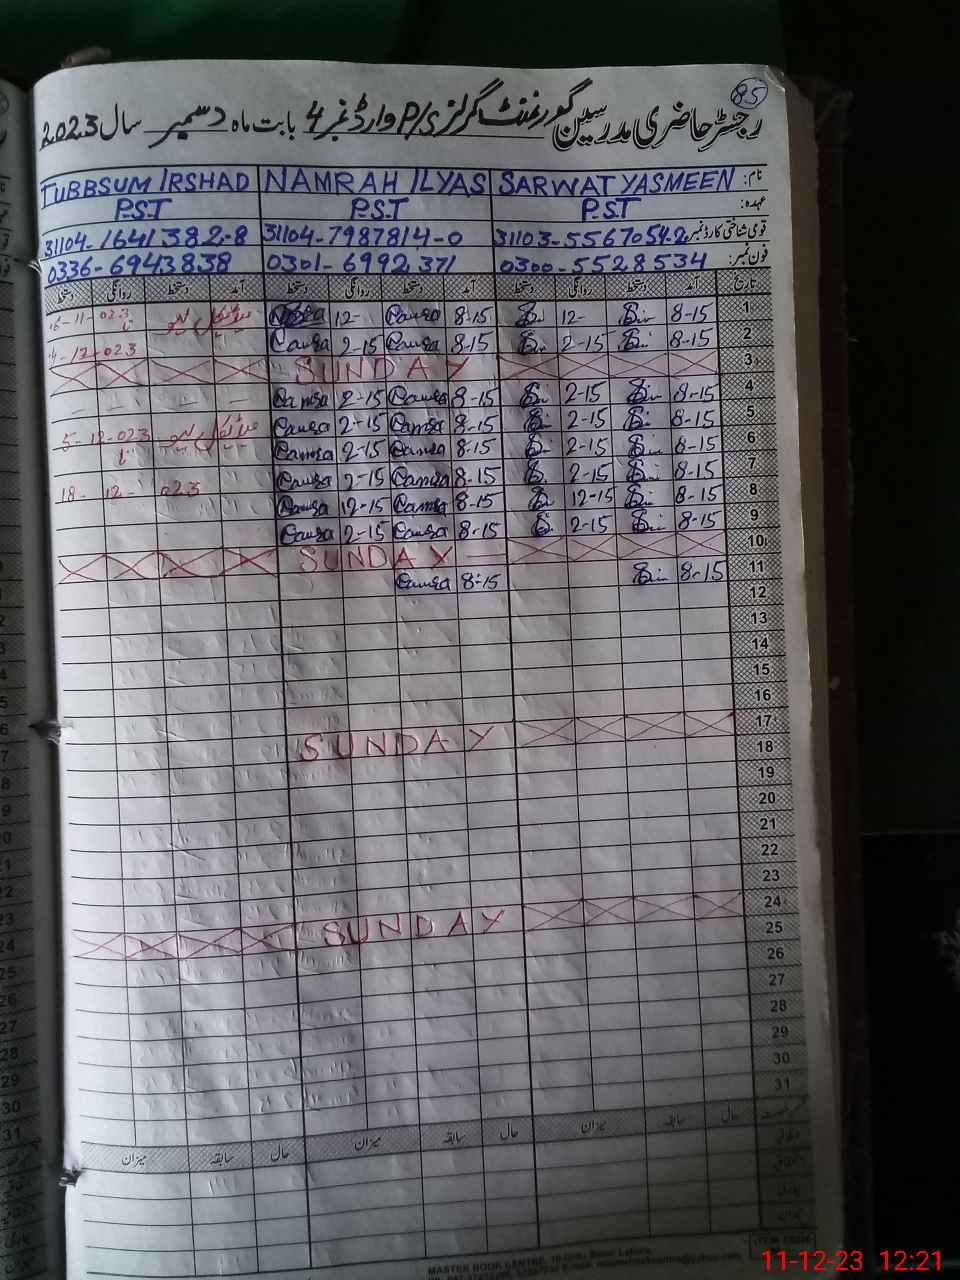 85
رجسٹر حاضری مدرسین گورنمنٹ گرلز P/S وارڈ نمبر 4 بابت ماہ دسمبر سال 2023
نام: SARWAT YASMEEN NAMRAH ILYAS TUBBSUM IRSHAD
عہدہ: P.S.T P.S.T P.S.T
قومی شناختی کارڈ نمبر 31103-5567054-2 31104-7987814-0 31104-1641382-8
فون نمبر: 0300-5528534 0301-6992371 0336-6943838
تاریخ آمد دستخط روانگی دستخط آمد دستخط روانگی دستخط آمد دستخط روانگی دستخط
1 8-15 12- 8-15 12- میڈیکل لیو 6-11-023 تا
2 8-15 2-15 8-15 2-15 4-12-023
3 SUNDAY
4 8-15 2-15 8-15 2-15
5 8-15 2-15 8-15 2-15 میڈیکل لیو 5-12-023 تا
6 8-15 2-15 8-15 2-15
7 8-15 2-15 8-15 2-15 18-12-023
8 8-15 12-15 8-15 12-15
9 8-15 2-15 8-15 2-15
10 SUNDAY
11 8-15 8-15
12
13
14
15
16
17 SUNDAY
18
19
20
21
22
23
24 SUNDAY
25
26
27
28
29
30
31
حال سابقہ میزان حال سابقہ میزان حال سابقہ میزان
MASTER BOOK CENTRE, Lahore
11-12-23 12:21